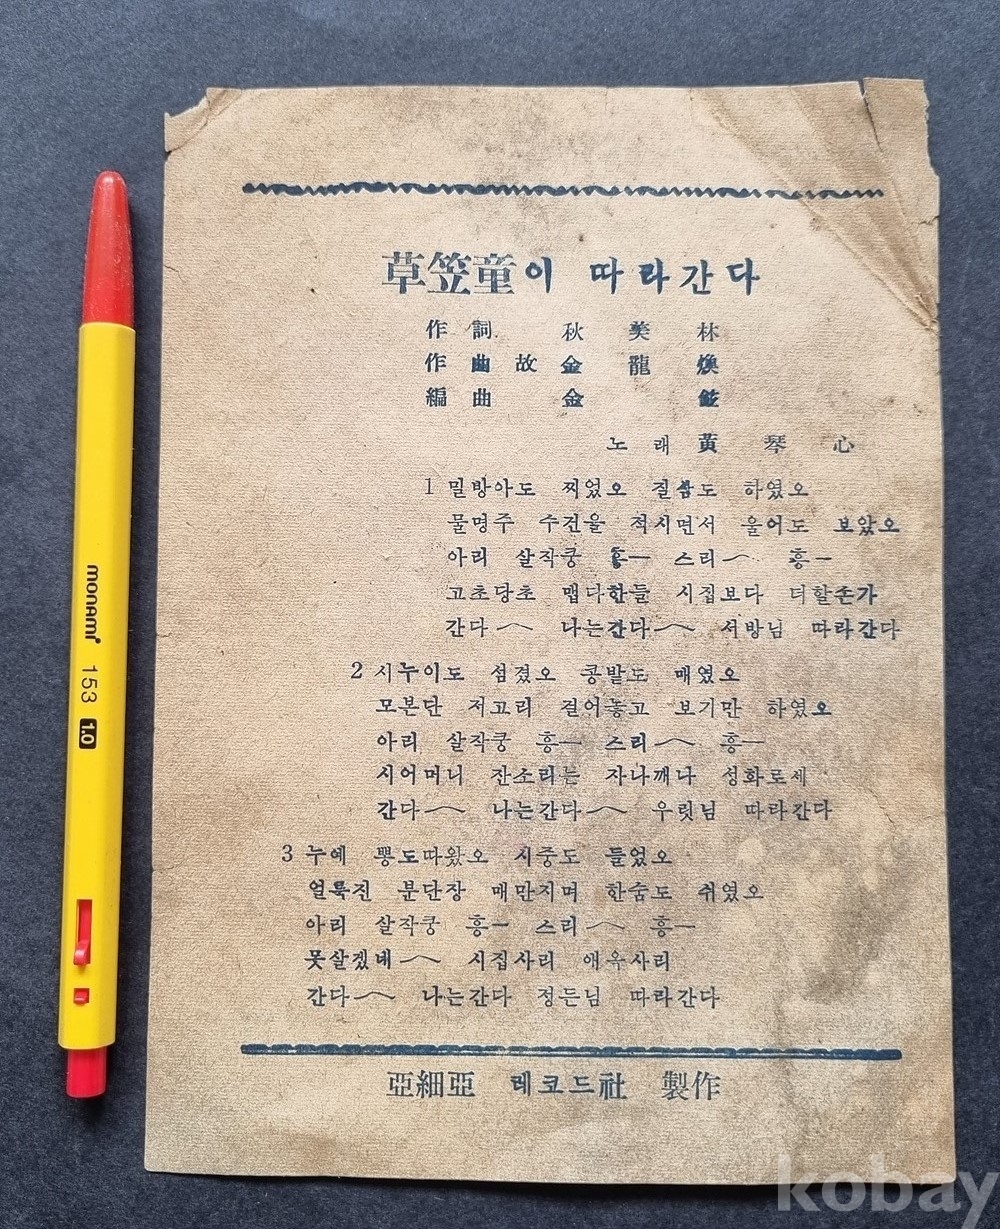 草笠童이 따라간다
作詞 秋美林
作曲 故 金龍煥
編曲 金
노래 黃琴心
1 밀방아도 찌었오 질쌈도 하였오
물명주 수건을 적시면서 울어도 보았오
아리 살작쿵 흥— 스리〳〵 흥—
고초당초 맵다한들 시집보다 더할손가
간다〳〵 나는간다〳〵 서방님 따라간다
2 시누이도 섬겼오 콩밭도 매였오
모본단 저고리 걸어놓고 보기만 하였오
아리 살작쿵 흥— 스리〳〵 흥—
시어머니 잔소리는 자나깨나 성화로세
간다〳〵 나는간다〳〵 우릿님 따라간다
3 누에 뽕도따왔오 시중도 들었오
얼룩진 분단장 매만지며 한숨도 쉬였오
아리 살작쿵 흥— 스리〳〵 흥—
못살겠네〳〵 시집사리 애욱사리
간다〳〵 나는간다 정든님 따라간다
亞細亞 레코드社 製作
monami 153 1.0
kobay